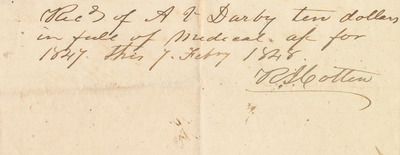 Recd of A V Darby ten dollars
in full of Medical a/c for
1847. this 7. Feby 1848.
R S Cotten